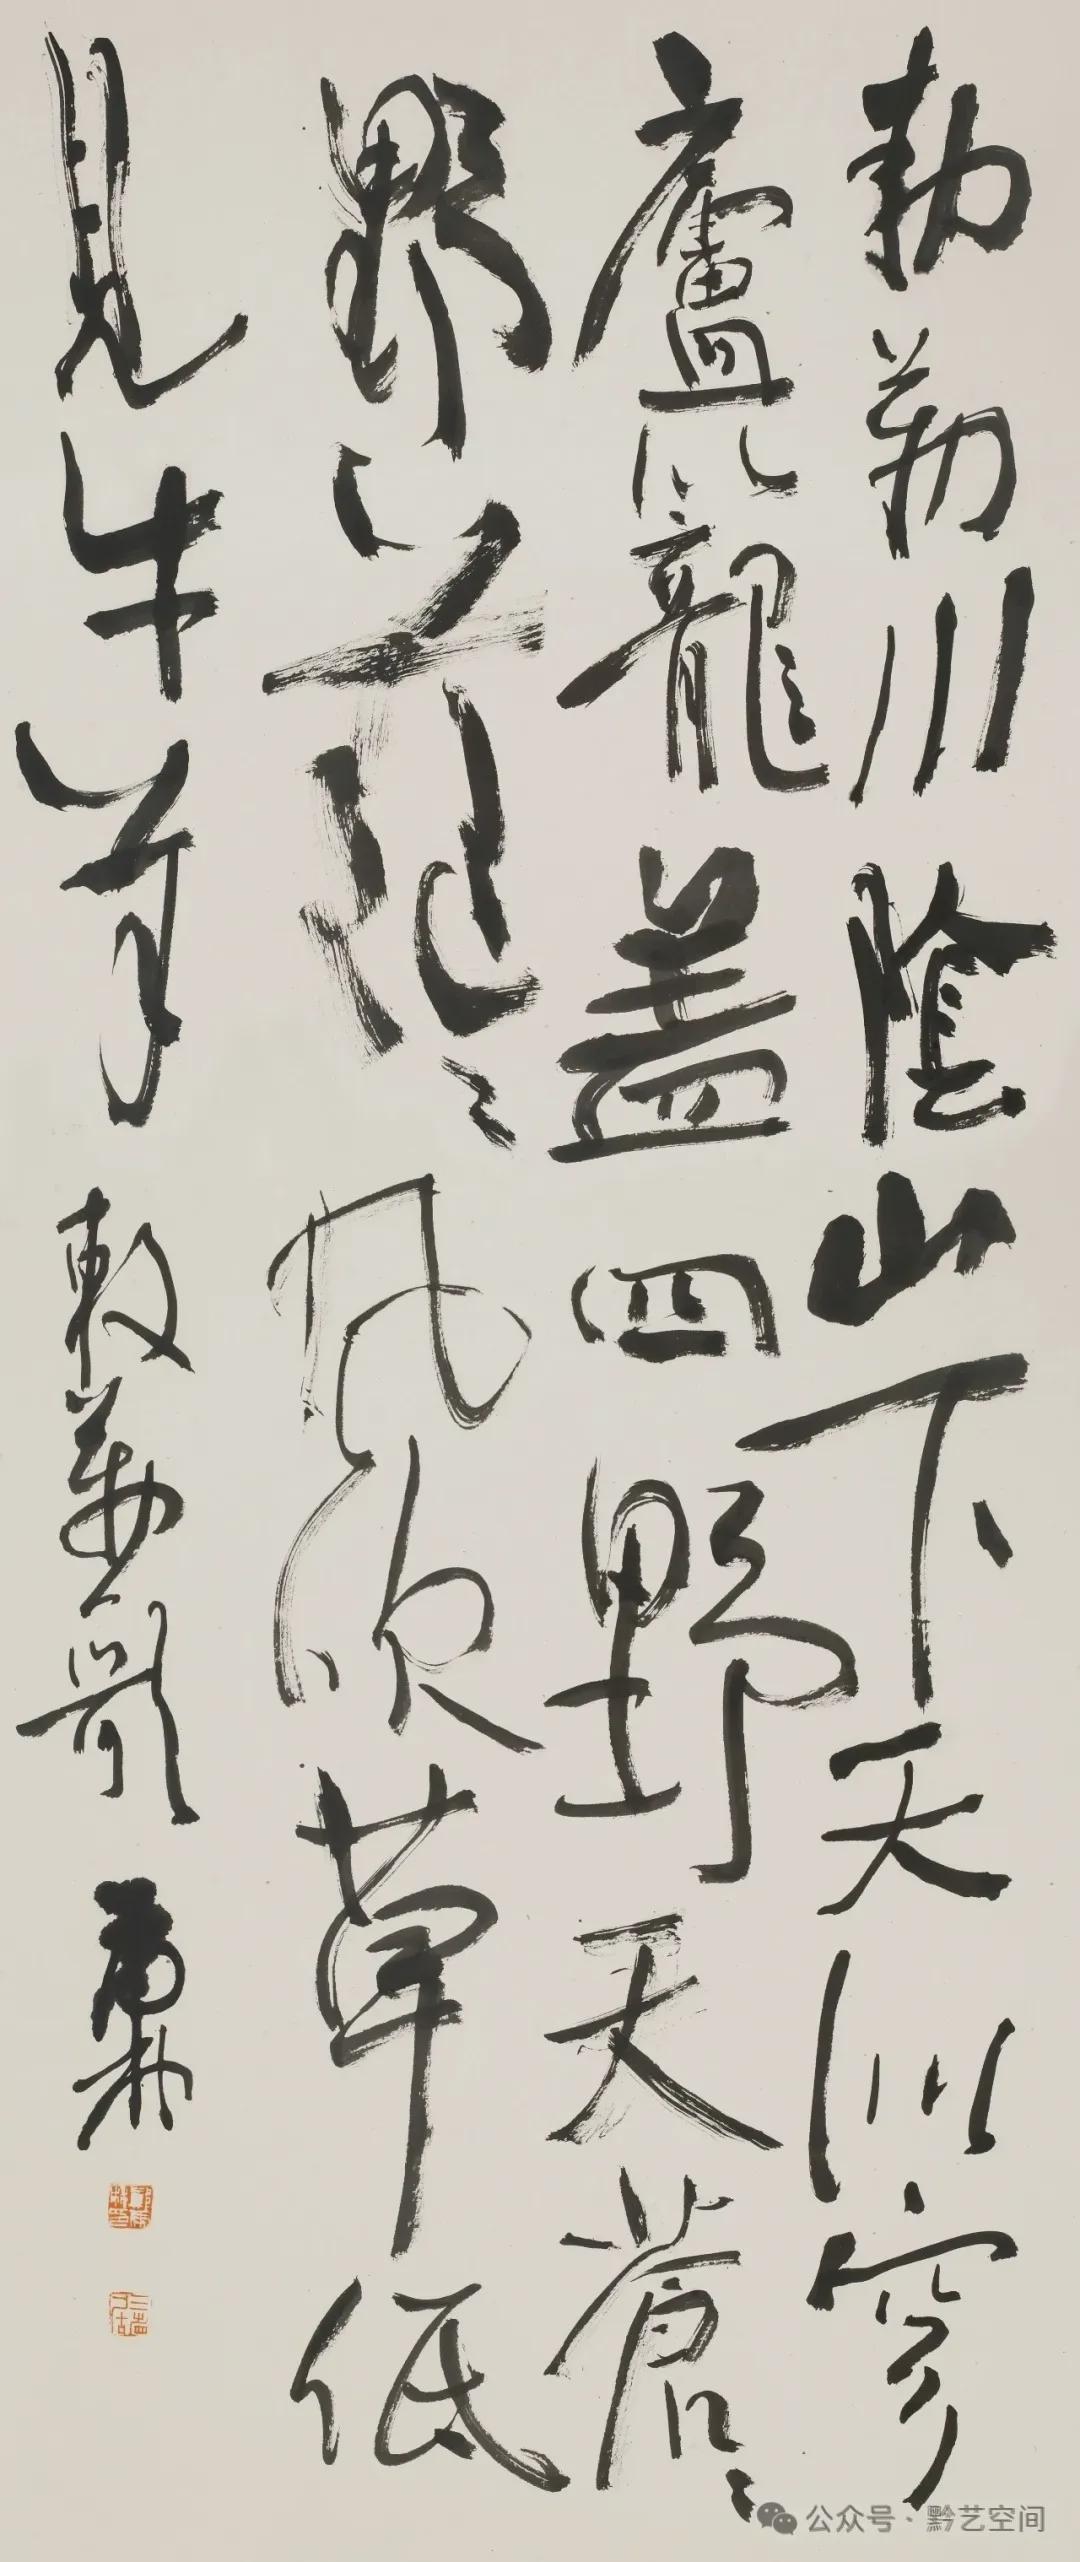 勅勒川陰山下天似穹
廬籠盖四野天蒼〻
野茫〻風吹草低
見牛羊 敕勒歌
公众号 · 黔艺空间